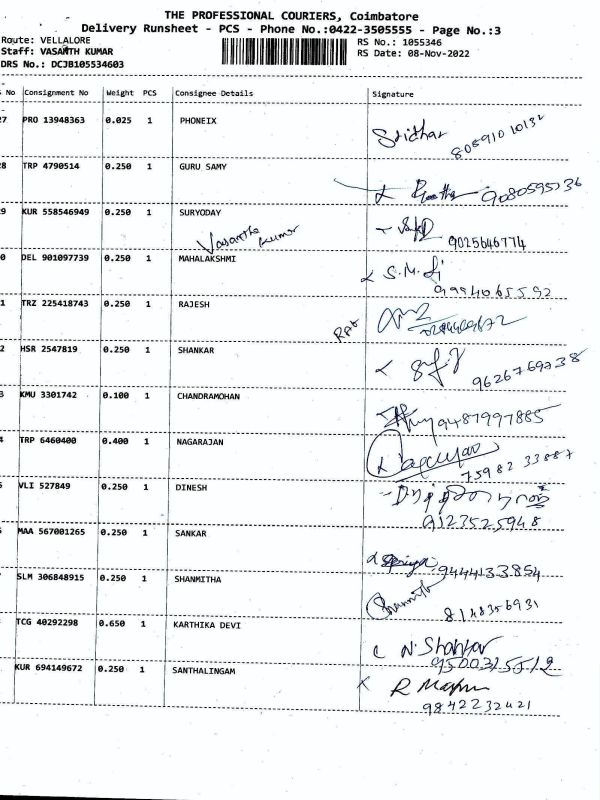 THE PROFESSIONAL COURIERS, Coimbatore
Delivery Runsheet - PCS - Phone No.:0422-3505555 - Page No.:3
Route: VELLALORE
Staff: VASANTH KUMAR
DRS No.: DCJB105534603
RS No.: 1055346
RS Date: 08-Nov-2022
No Consignment No Weight PCS Consignee Details Signature
7 PRO 13948363 0.025 1 PHONEIX Sridhar
80591010132
8 TRP 4790514 0.250 1 GURU SAMY
9080595736
9 KUR 558546949 0.250 1 SURYODAY
9025646774
Vasantha Kumar
0 DEL 901097739 0.250 1 MAHALAKSHMI S.M.
9994065592
1 TRZ 225418743 0.250 1 RAJESH
2 HSR 2547819 0.250 1 SHANKAR
9626769738
3 KMU 3301742 0.100 1 CHANDRAMOHAN 9487997885
4 TRP 6460400 0.400 1 NAGARAJAN
75982 33887
VLI 527849 0.250 1 DINESH
9123525948
MAA 567001265 0.250 1 SANKAR
9444133854
SLM 306848915 0.250 1 SHANMITHA Shanmith
8148356931
TCG 40292298 0.650 1 KARTHIKA DEVI N. Shankar
KUR 694149672 0.250 1 SANTHALINGAM
9842232421